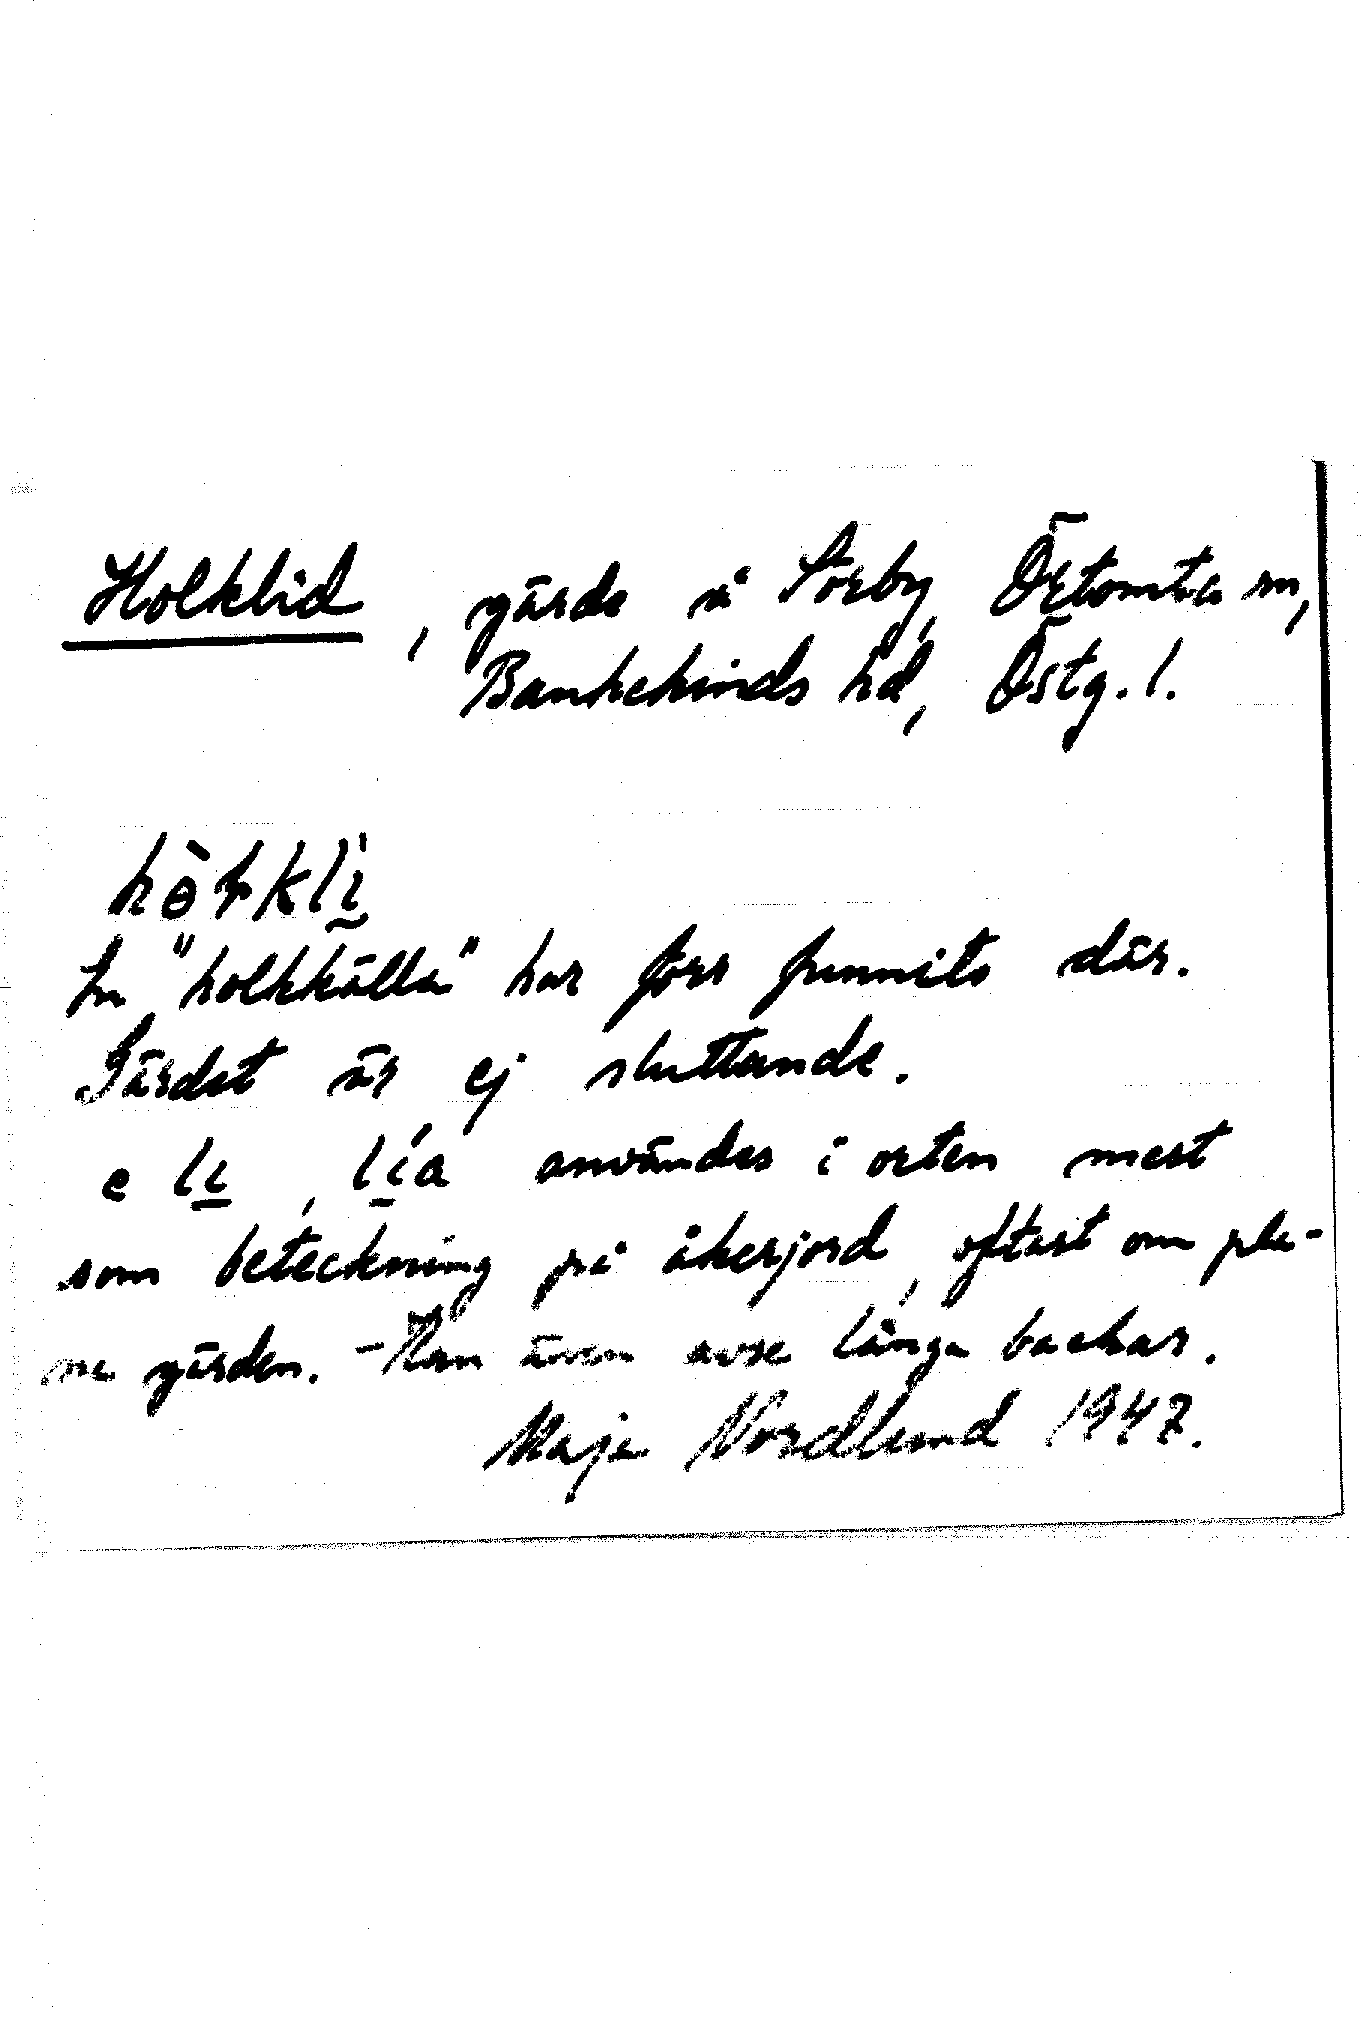 Holklid, gärde å Sörby, Örtomta sn,
Bankekinds hd, Östg. l.
En "holkkälla" har förr funnits där.
Gärdet är ej sluttande.
e li, lia användes i orten mest
som beteckning på åkerjord, oftast om pla-
na gärden. - Kan även avse långa backar.
Maja Nordlund 1947.